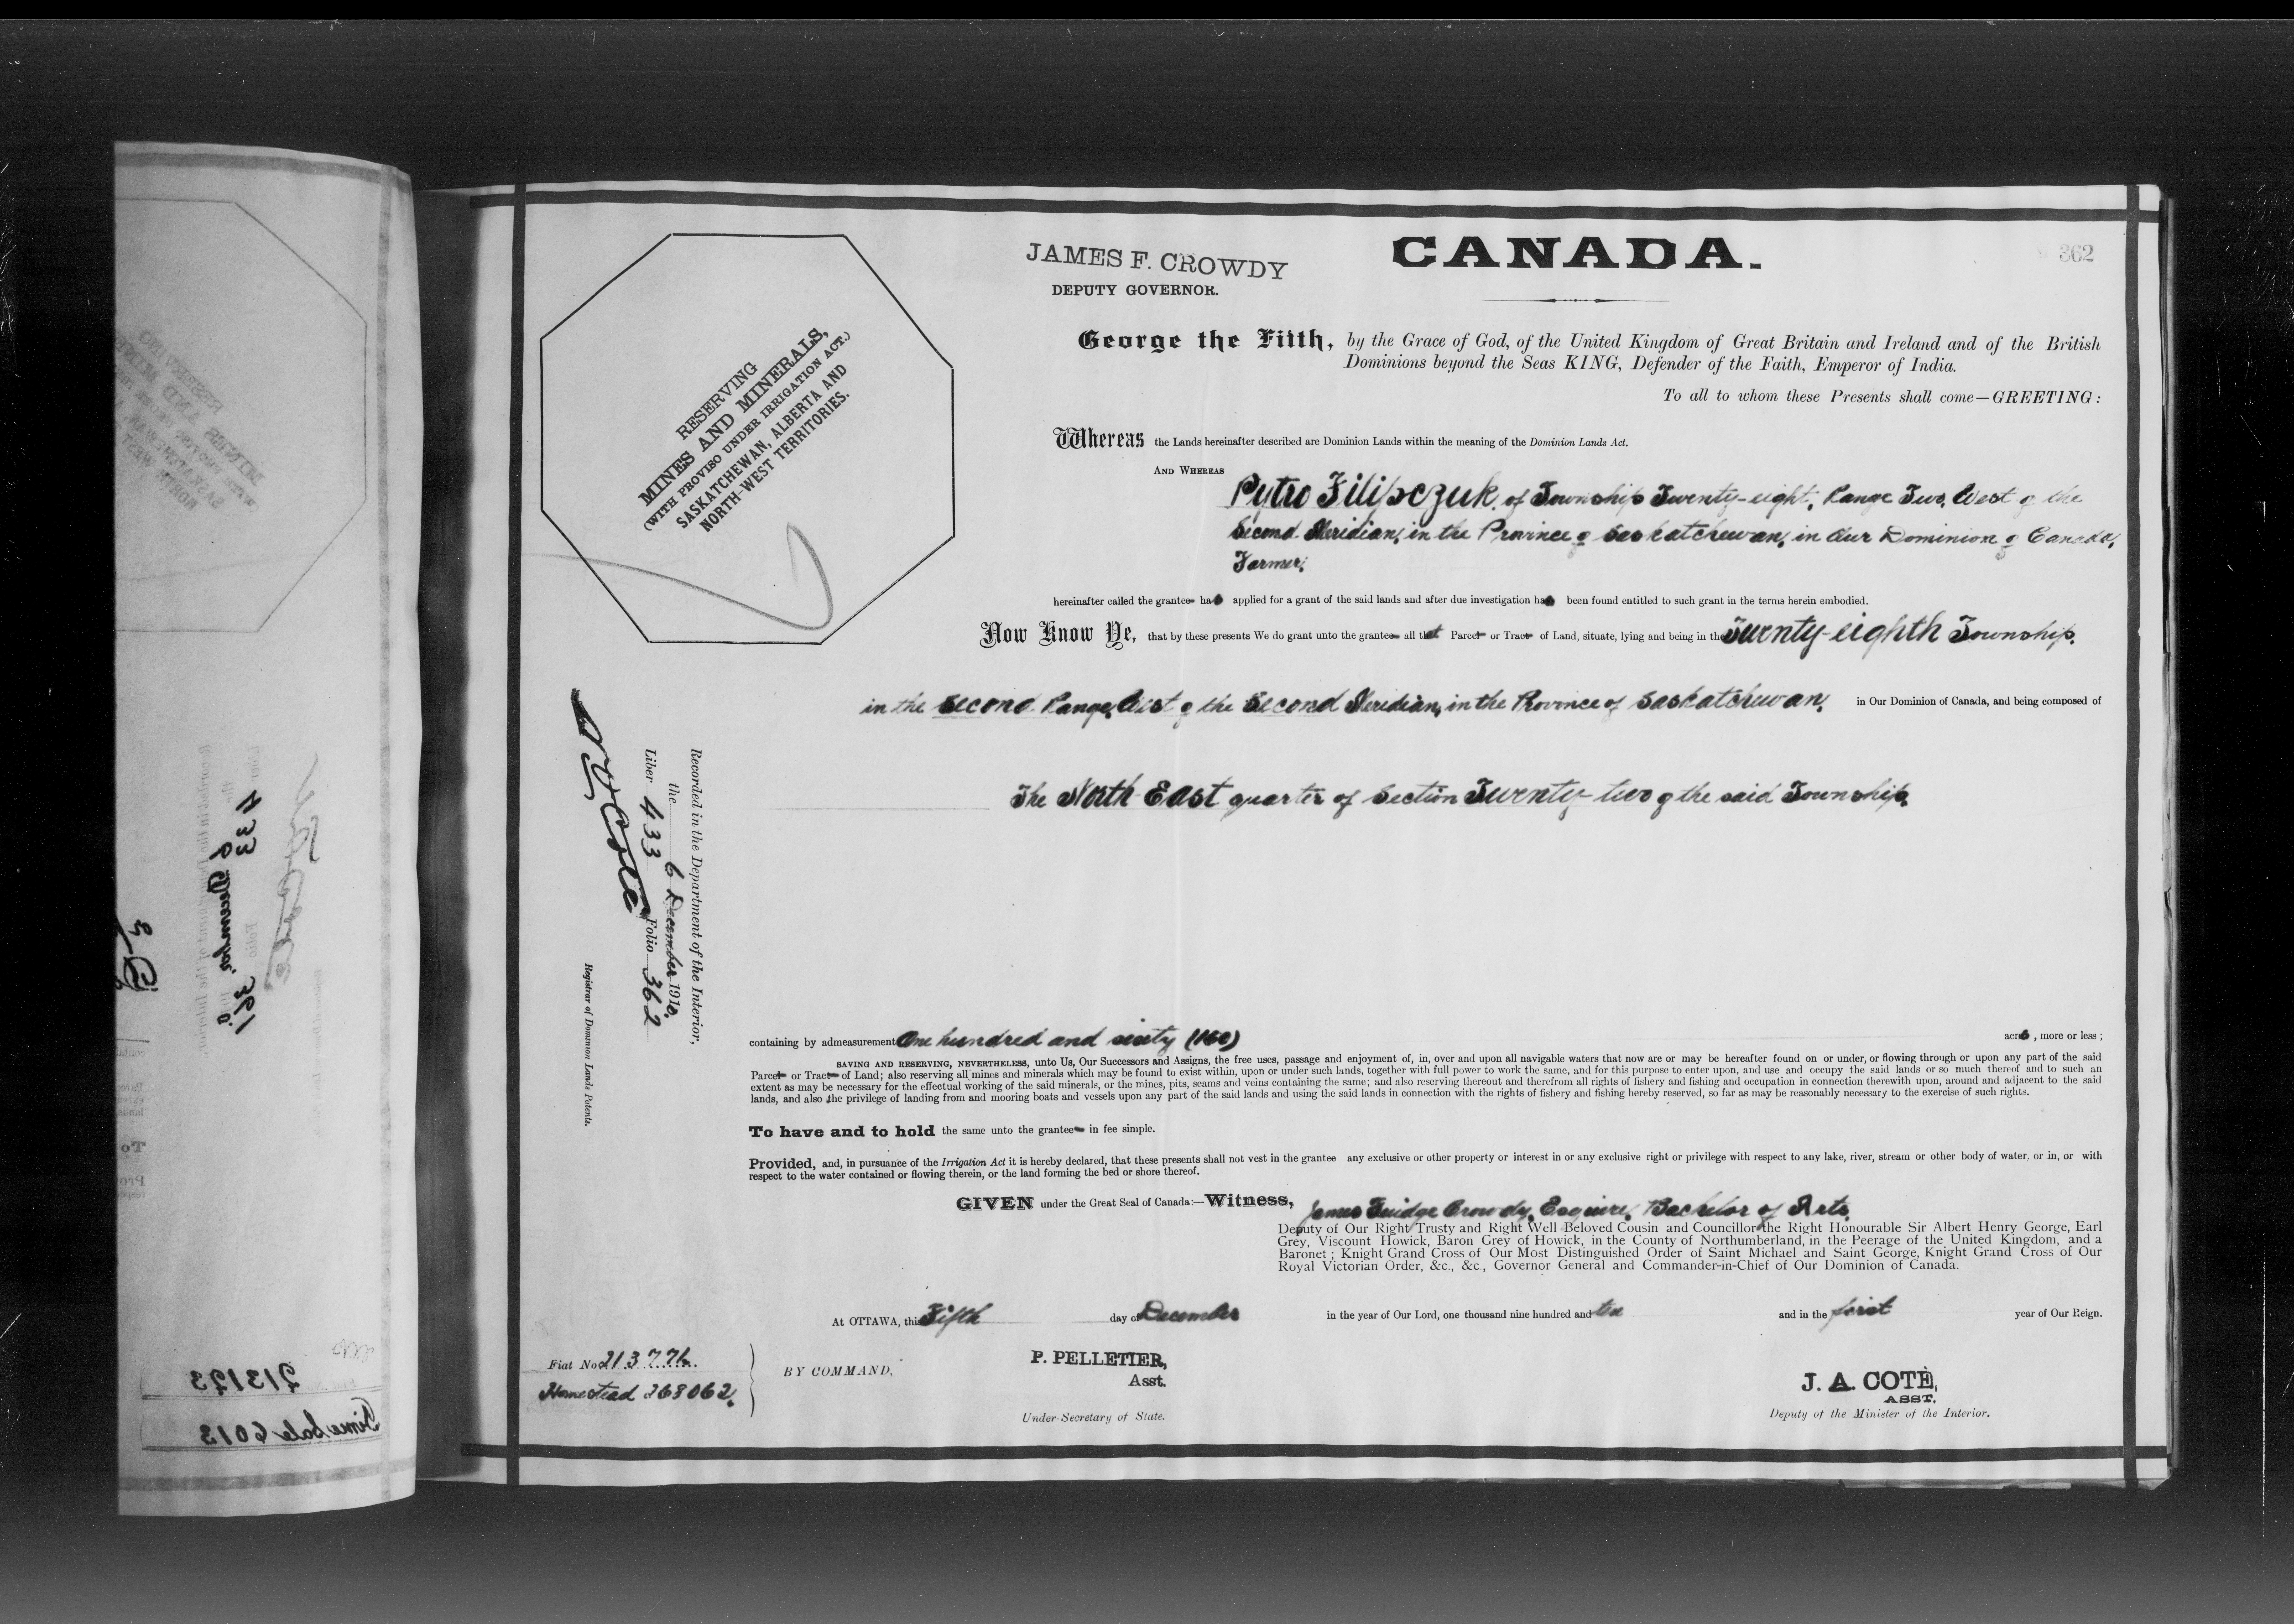 362
CANADA.
JAMES F. CROWDY
DEPUTY GOVERNOR.
George the Fifth, by the Grace of God, of the United Kingdom of Great Britain and Ireland and of the British
Dominions beyond the Seas KING, Defender of the Faith, Emperor of India.
To all to whom these Presents shall come—GREETING:
RESERVING
MINES AND MINERALS,
(WITH PROVISO UNDER IRRIGATION ACT.)
SASKATCHEWAN, ALBERTA AND
NORTH-WEST TERRITORIES.
Whereas the Lands hereinafter described are Dominion Lands within the meaning of the Dominion Lands Act.
AND WHEREAS
Pytro Filipczuk, of Township Twenty-eight, Range Two, West of the
Second Meridian, in the Province of Saskatchewan, in Our Dominion of Canada,
Farmer,
hereinafter called the grantee has applied for a grant of the said lands and after due investigation has been found entitled to such grant in the terms herein embodied.
Now Know Ye, that by these presents We do grant unto the grantee all that Parcel or Tract of Land, situate, lying and being in the Twenty-eighth Township,
in the Second Range, West of the Second Meridian, in the Province of Saskatchewan, in Our Dominion of Canada, and being composed of
The North East quarter of Section Twenty-two of the said Township,
Recorded in the Department of the Interior,
the 6 December 1910,
Liber 433 Folio 362
N O Coté
Registrar of Dominion Lands Patents.
containing by admeasurement One hundred and sixty (160) acres, more or less;
SAVING AND RESERVING, NEVERTHELESS, unto Us, Our Successors and Assigns, the free uses, passage and enjoyment of, in, over and upon all navigable waters that now are or may be hereafter found on or under, or flowing through or upon any part of the said
Parcel or Tract of Land; also reserving all mines and minerals which may be found to exist within, upon or under such lands, together with full power to work the same, and for this purpose to enter upon, and use and occupy the said lands or so much thereof and to such an
extent as may be necessary for the effectual working of the said minerals, or the mines, pits, seams and veins containing the same; and also reserving thereout and therefrom all rights of fishery and fishing and occupation in connection therewith upon, around and adjacent to the said
lands, and also the privilege of landing from and mooring boats and vessels upon any part of the said lands and using the said lands in connection with the rights of fishery and fishing hereby reserved, so far as may be reasonably necessary to the exercise of such rights.
To have and to hold the same unto the grantee in fee simple.
Provided, and, in pursuance of the Irrigation Act it is hereby declared, that these presents shall not vest in the grantee any exclusive or other property or interest in or any exclusive right or privilege with respect to any lake, river, stream or other body of water, or in, or with
respect to the water contained or flowing therein, or the land forming the bed or shore thereof.
GIVEN under the Great Seal of Canada:—Witness, James Fuidge Crowdy, Esquire, Bachelor of Arts,
Deputy of Our Right Trusty and Right Well Beloved Cousin and Councillor the Right Honourable Sir Albert Henry George, Earl
Grey, Viscount Howick, Baron Grey of Howick, in the County of Northumberland, in the Peerage of the United Kingdom, and a
Baronet; Knight Grand Cross of Our Most Distinguished Order of Saint Michael and Saint George, Knight Grand Cross of Our
Royal Victorian Order, &c., &c., Governor General and Commander-in-Chief of Our Dominion of Canada.
At OTTAWA, this Fifth day of December in the year of Our Lord, one thousand nine hundred and ten and in the first year of Our Reign.
Fiat No 213776.
Homestead 268062.
BY COMMAND,
P. PELLETIER,
Asst.
Under-Secretary of State.
J. A. COTÉ,
ASST.
Deputy of the Minister of the Interior.